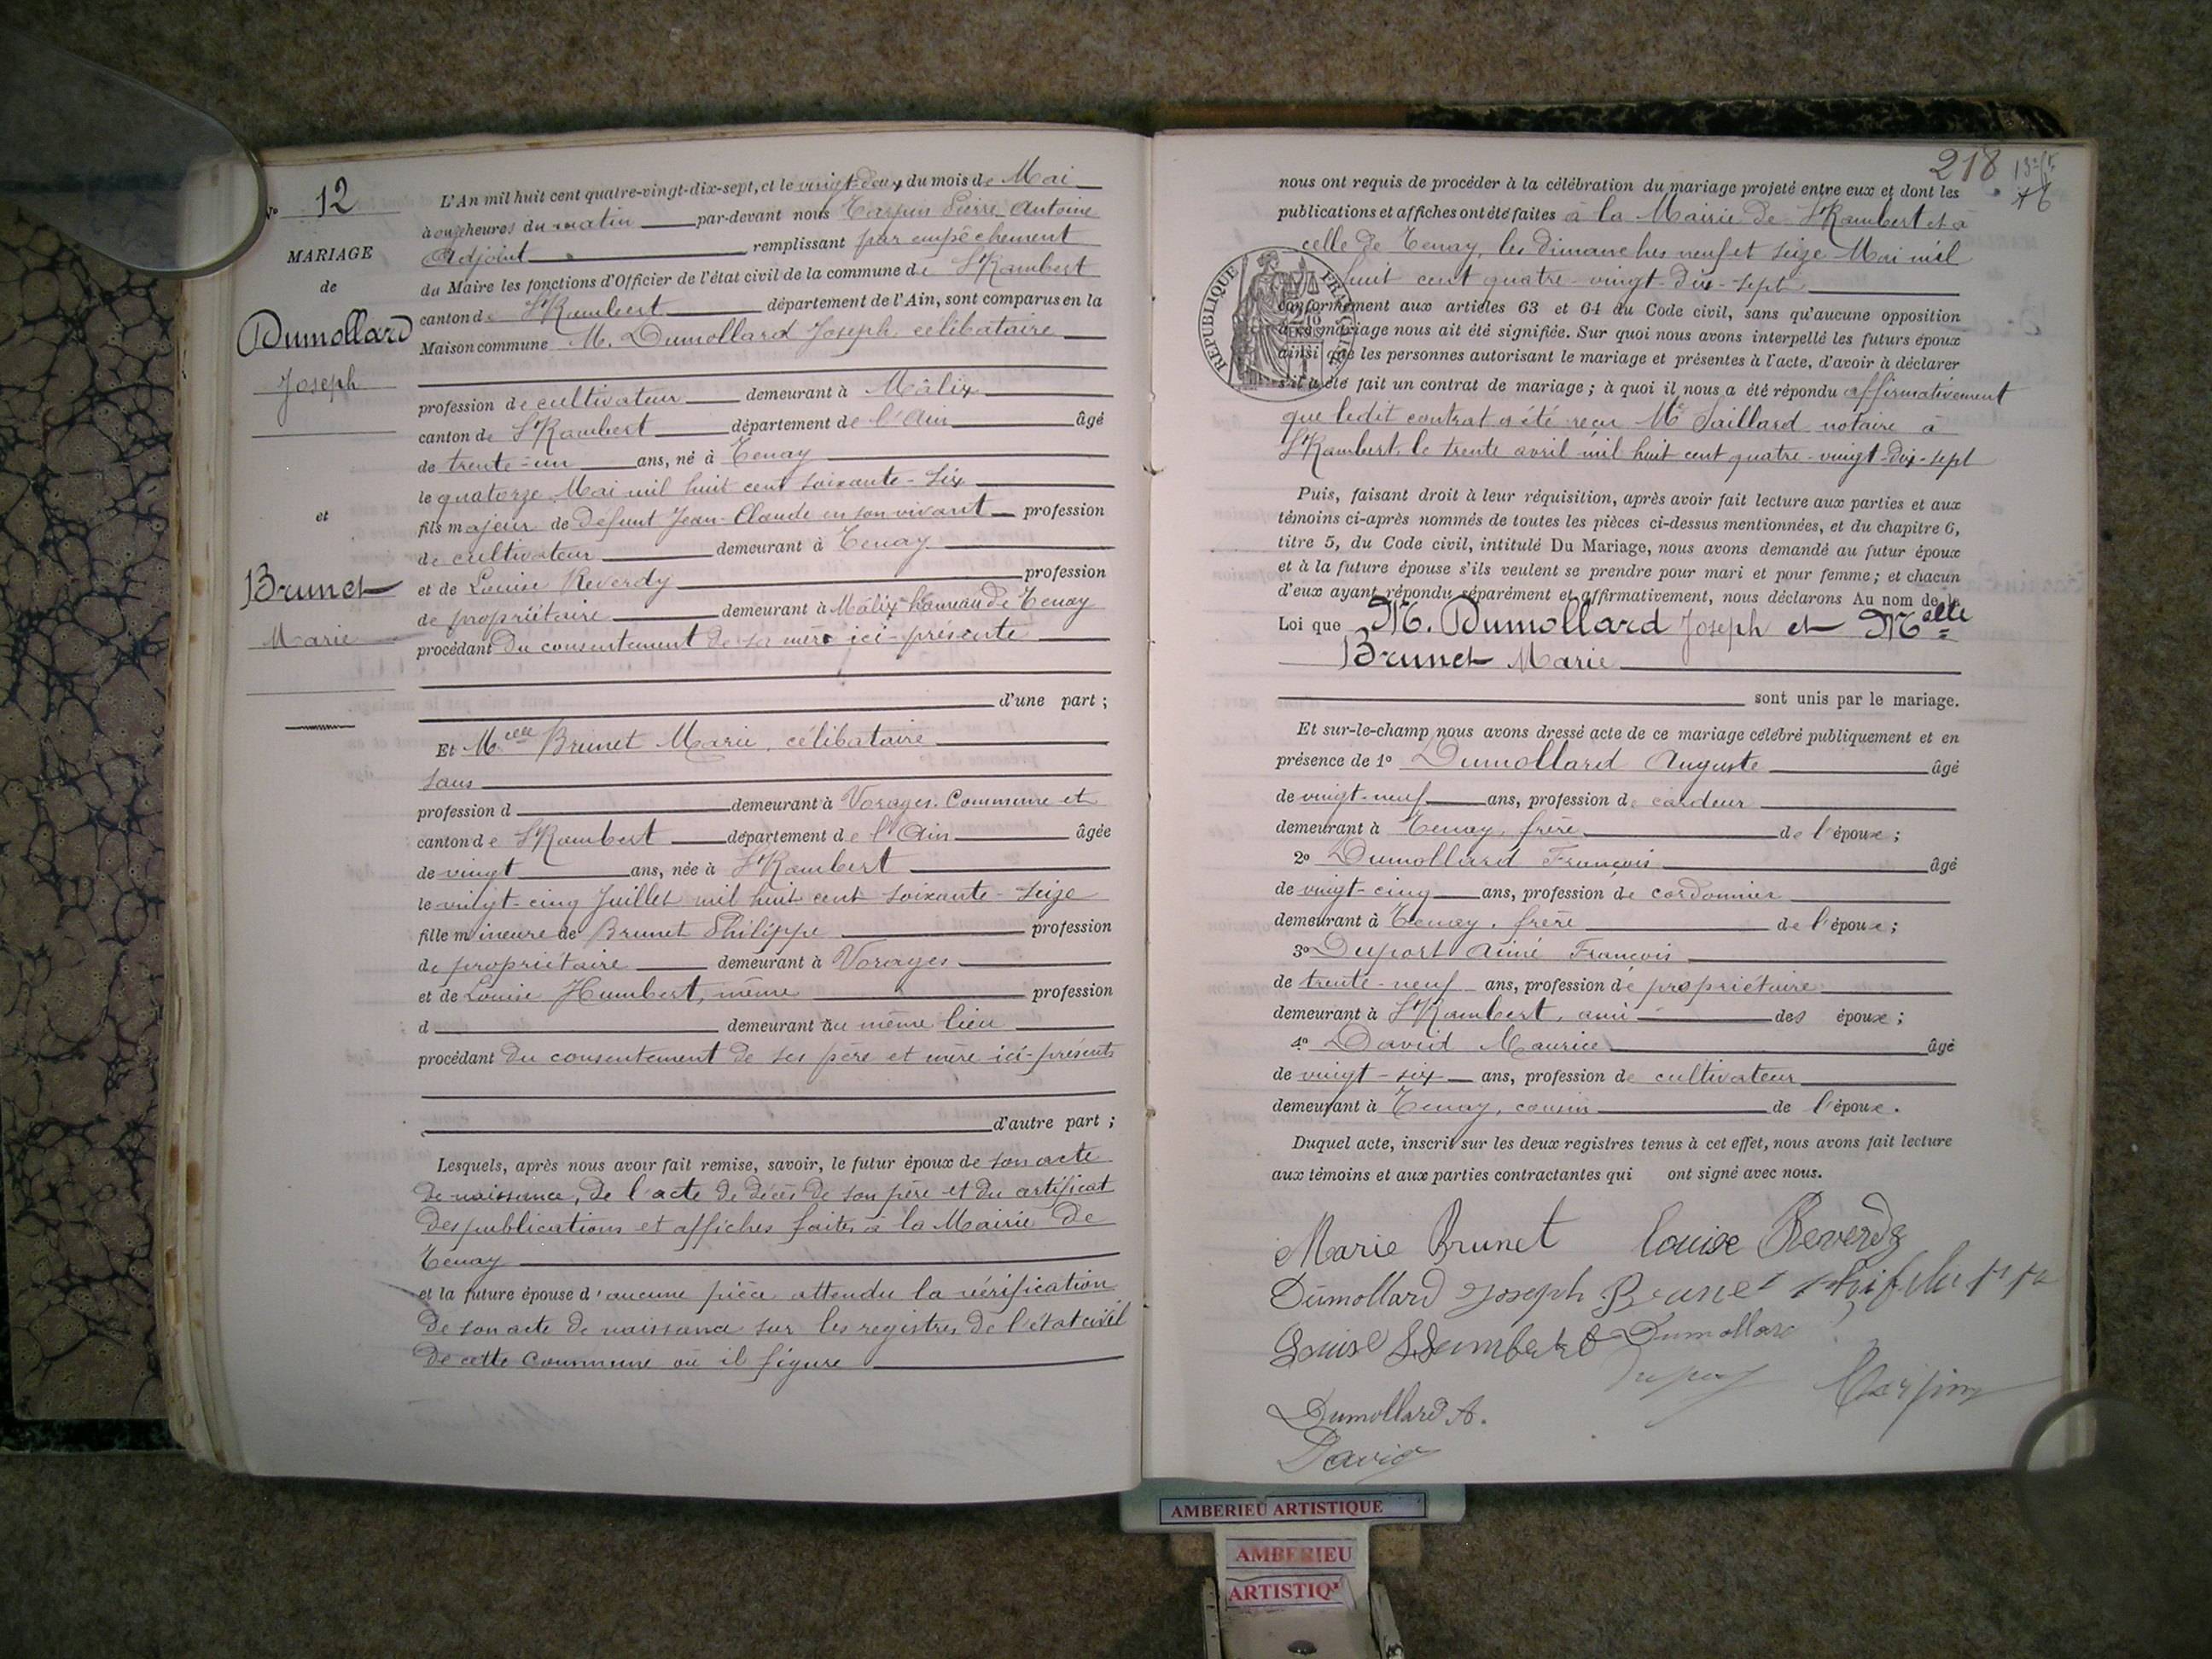 No 12
MARIAGE
de
Dumollard
Joseph
et
Brunet
Marie
L'An mil huit cent quatre-vingt-dix-sept, et le vingt-deux du mois de Mai
à onze heures du matin par-devant nous Tarpin Pierre Antoine
Adjoint remplissant par empêchement
du Maire les fonctions d'Officier de l'état civil de la commune de St Rambert
canton de St Rambert département de l'Ain, sont comparus en la
Maison commune M. Dumollard Joseph, célibataire
profession de cultivateur demeurant à Mâlix
canton de St Rambert département de l'Ain âgé
de trente-un ans, né à Tenay
le quatorze Mai mil huit cent soixante-six
fils majeur de défunt Jean-Claude en son vivant profession
de cultivateur demeurant à Tenay
et de Louise Reverdy profession
de propriétaire demeurant à Mâlix hameau de Tenay
procédant du consentement de sa mère ici-présente
d'une part ;
Et Melle Brunet Marie, célibataire
sans
profession d demeurant à Vorages. Commune et
canton de St Rambert département de l'Ain âgée
de vingt ans, née à St Rambert
le vingt-cinq Juillet mil huit cent soixante-seize
fille mineure de Brunet Philippe profession
de propriétaire demeurant à Vorages
et de Louise Humbert, même profession
d demeurant au même lieu
procédant du consentement de ses père et mère ici-présents
d'autre part ;
Lesquels, après nous avoir fait remise, savoir, le futur époux de son acte
de naissance, de l'acte de décès de son père et du certificat
des publications et affiches faites à la Mairie de
Tenay
et la future épouse d'aucune pièce attendu la vérification
de son acte de naissance sur les registres de l'état civil
de cette Commune où il figure
218
nous ont requis de procéder à la célébration du mariage projeté entre eux et dont les
publications et affiches ont été faites à la Mairie de St Rambert et à
celle de Tenay, les dimanches neuf et seize Mai mil
huit cent quatre-vingt-dix-sept
RÉPUBLIQUE FRANÇAISE
conformément aux articles 63 et 64 du Code civil, sans qu'aucune opposition
à ce mariage nous ait été signifiée. Sur quoi nous avons interpellé les futurs époux
ainsi que les personnes autorisant le mariage et présentes à l'acte, d'avoir à déclarer
s'il a été fait un contrat de mariage ; à quoi il nous a été répondu affirmativement
que ledit contrat a été reçu Me Saillard notaire à
St Rambert, le trente avril mil huit cent quatre-vingt-dix-sept
Puis, faisant droit à leur réquisition, après avoir fait lecture aux parties et aux
témoins ci-après nommés de toutes les pièces ci-dessus mentionnées, et du chapitre 6,
titre 5, du Code civil, intitulé Du Mariage, nous avons demandé au futur époux
et à la future épouse s'ils veulent se prendre pour mari et pour femme ; et chacun
d'eux ayant répondu séparément et affirmativement, nous déclarons Au nom de la
Loi que M. Dumollard Joseph et Melle
Brunet Marie
sont unis par le mariage.
Et sur-le-champ nous avons dressé acte de ce mariage célébré publiquement et en
présence de 1º Dumollard Auguste âgé
de vingt-neuf ans, profession de cardeur
demeurant à Tenay, frère de l'époux ;
2º Dumollard François âgé
de vingt-cinq ans, profession de cordonnier
demeurant à Tenay, frère de l'époux ;
3º Duport Aimé François
de trente-neuf ans, profession de propriétaire
demeurant à St Rambert, ami des époux ;
4º David Maurice âgé
de vingt-six ans, profession de cultivateur
demeurant à Tenay, cousin de l'époux.
Duquel acte, inscrit sur les deux registres tenus à cet effet, nous avons fait lecture
aux témoins et aux parties contractantes qui ont signé avec nous.
Marie Brunet Louise Reverdy
Dumollard Joseph Brunet
Louise Humbert Dumollard
Tarpin
Dumollard A.
David
AMBERIEU ARTISTIQUE
AMBERIEU
ARTISTIQ